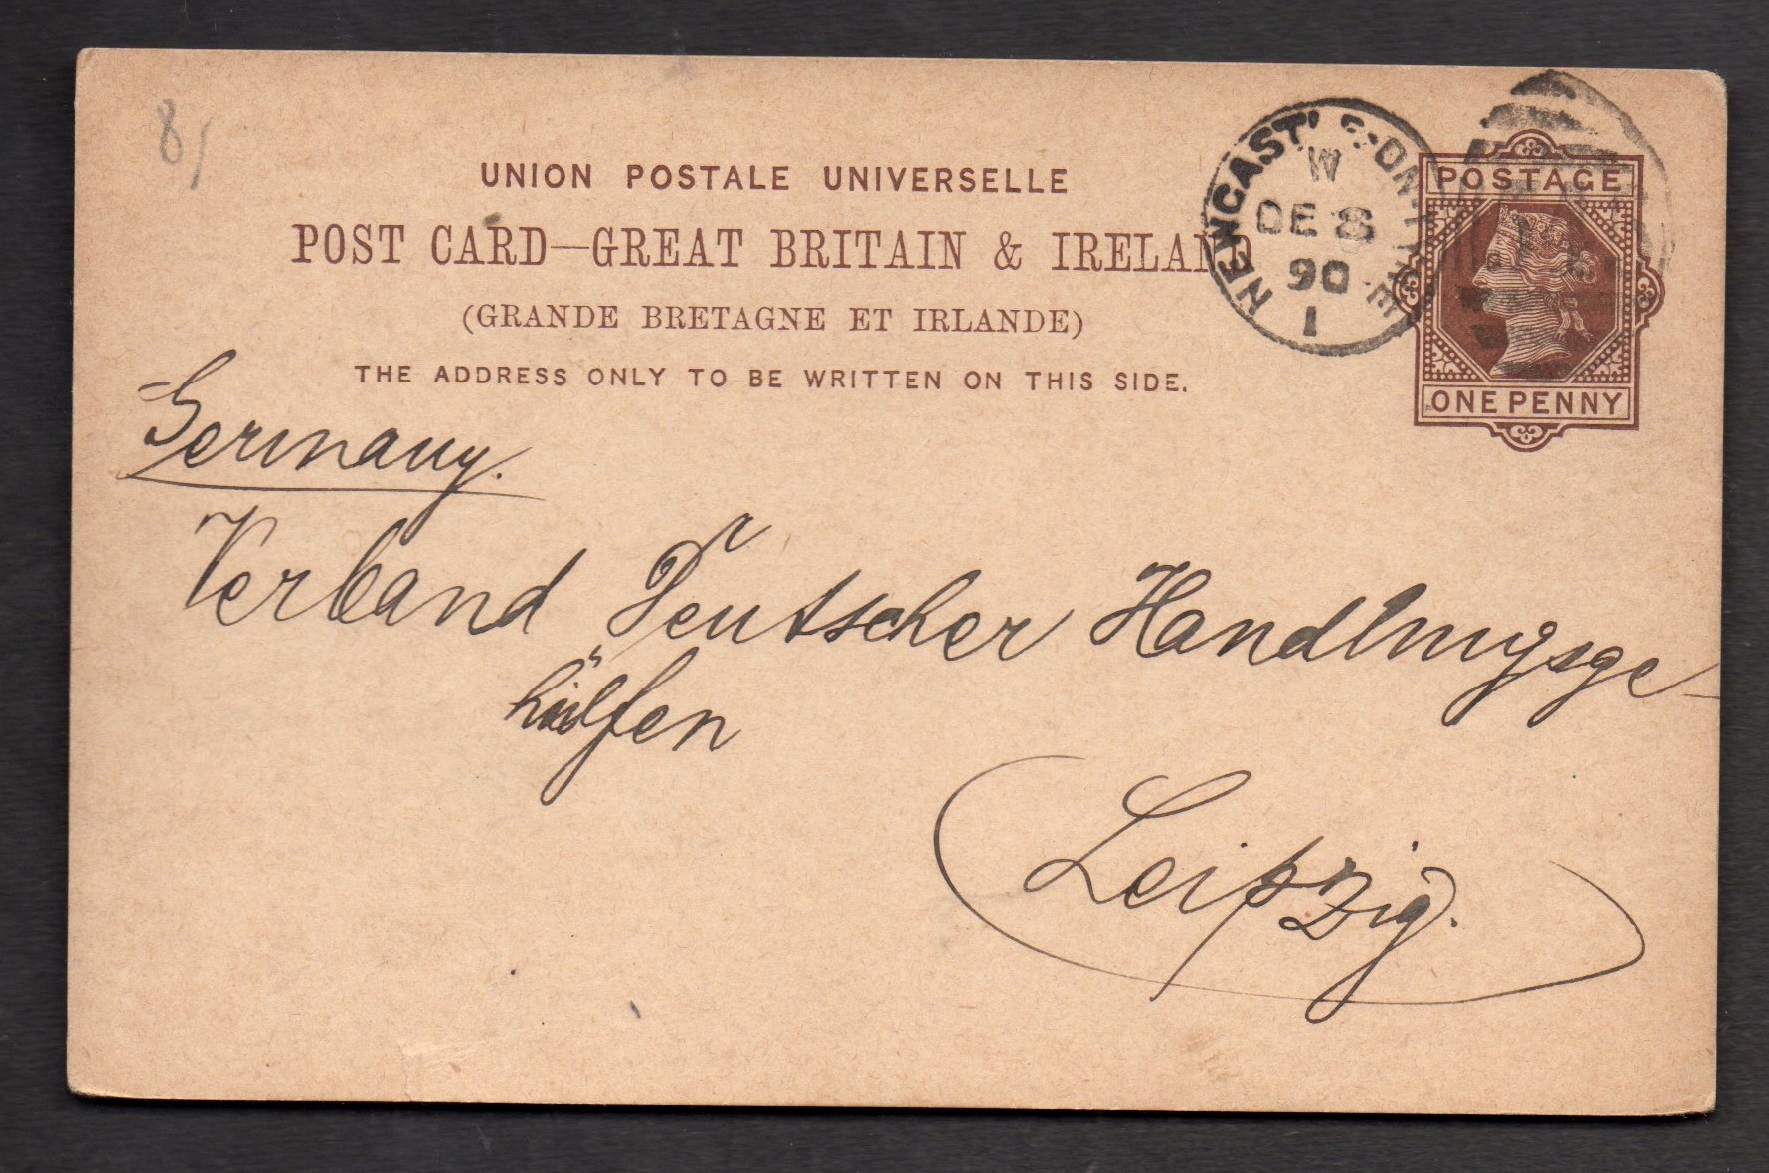 8/
UNION POSTALE UNIVERSELLE
POST CARD—GREAT BRITAIN & IRELAND
(GRANDE BRETAGNE ET IRLANDE)
THE ADDRESS ONLY TO BE WRITTEN ON THIS SIDE.
NEWCASTLE-ON-TYNE
W
DE 8
90
1
POSTAGE
ONE PENNY
Germany.
Verband Deutscher Handlungsge-
hülfen
Leipzig.